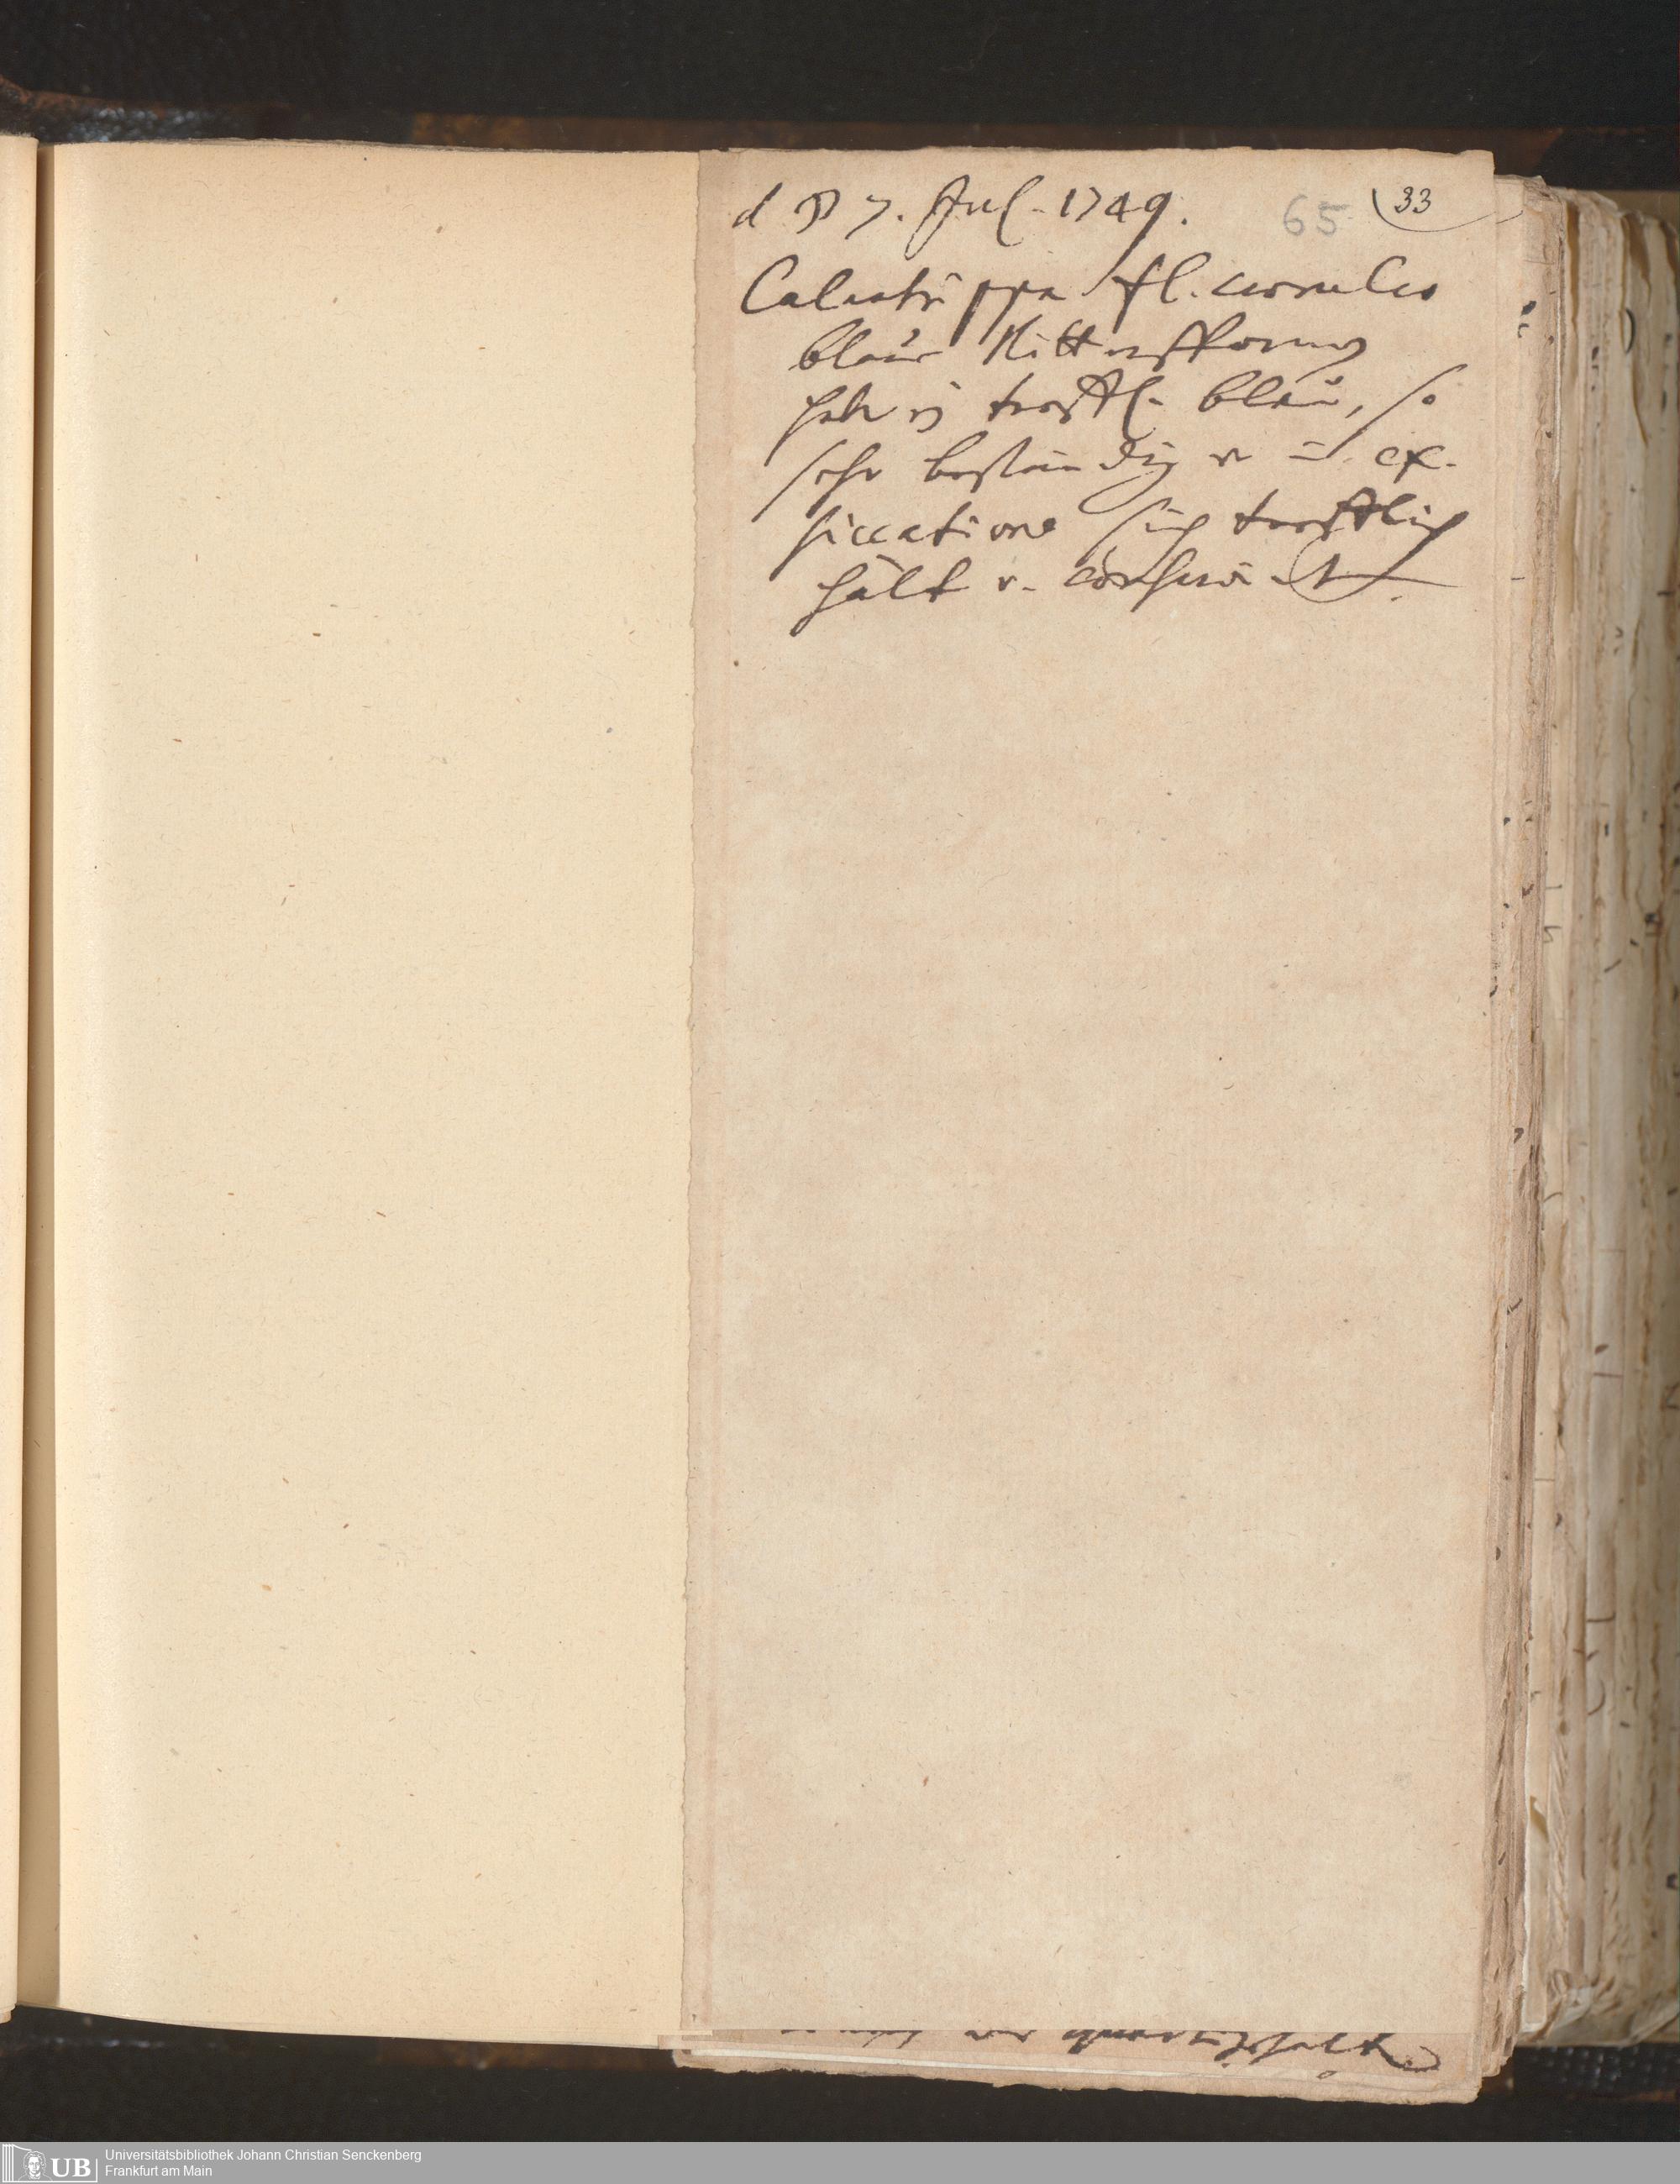 d 7. Jul. 1749.
65 33
Calcatrippa fl. coeruleo
blaue Rittersporn
habe ein trefftl. blau, so
sehr beständig v. in ex-
siccatione sich trefftlich
hält v. conservirt.
Universitätsbibliothek Johann Christian Senckenberg
UB Frankfurt am Main